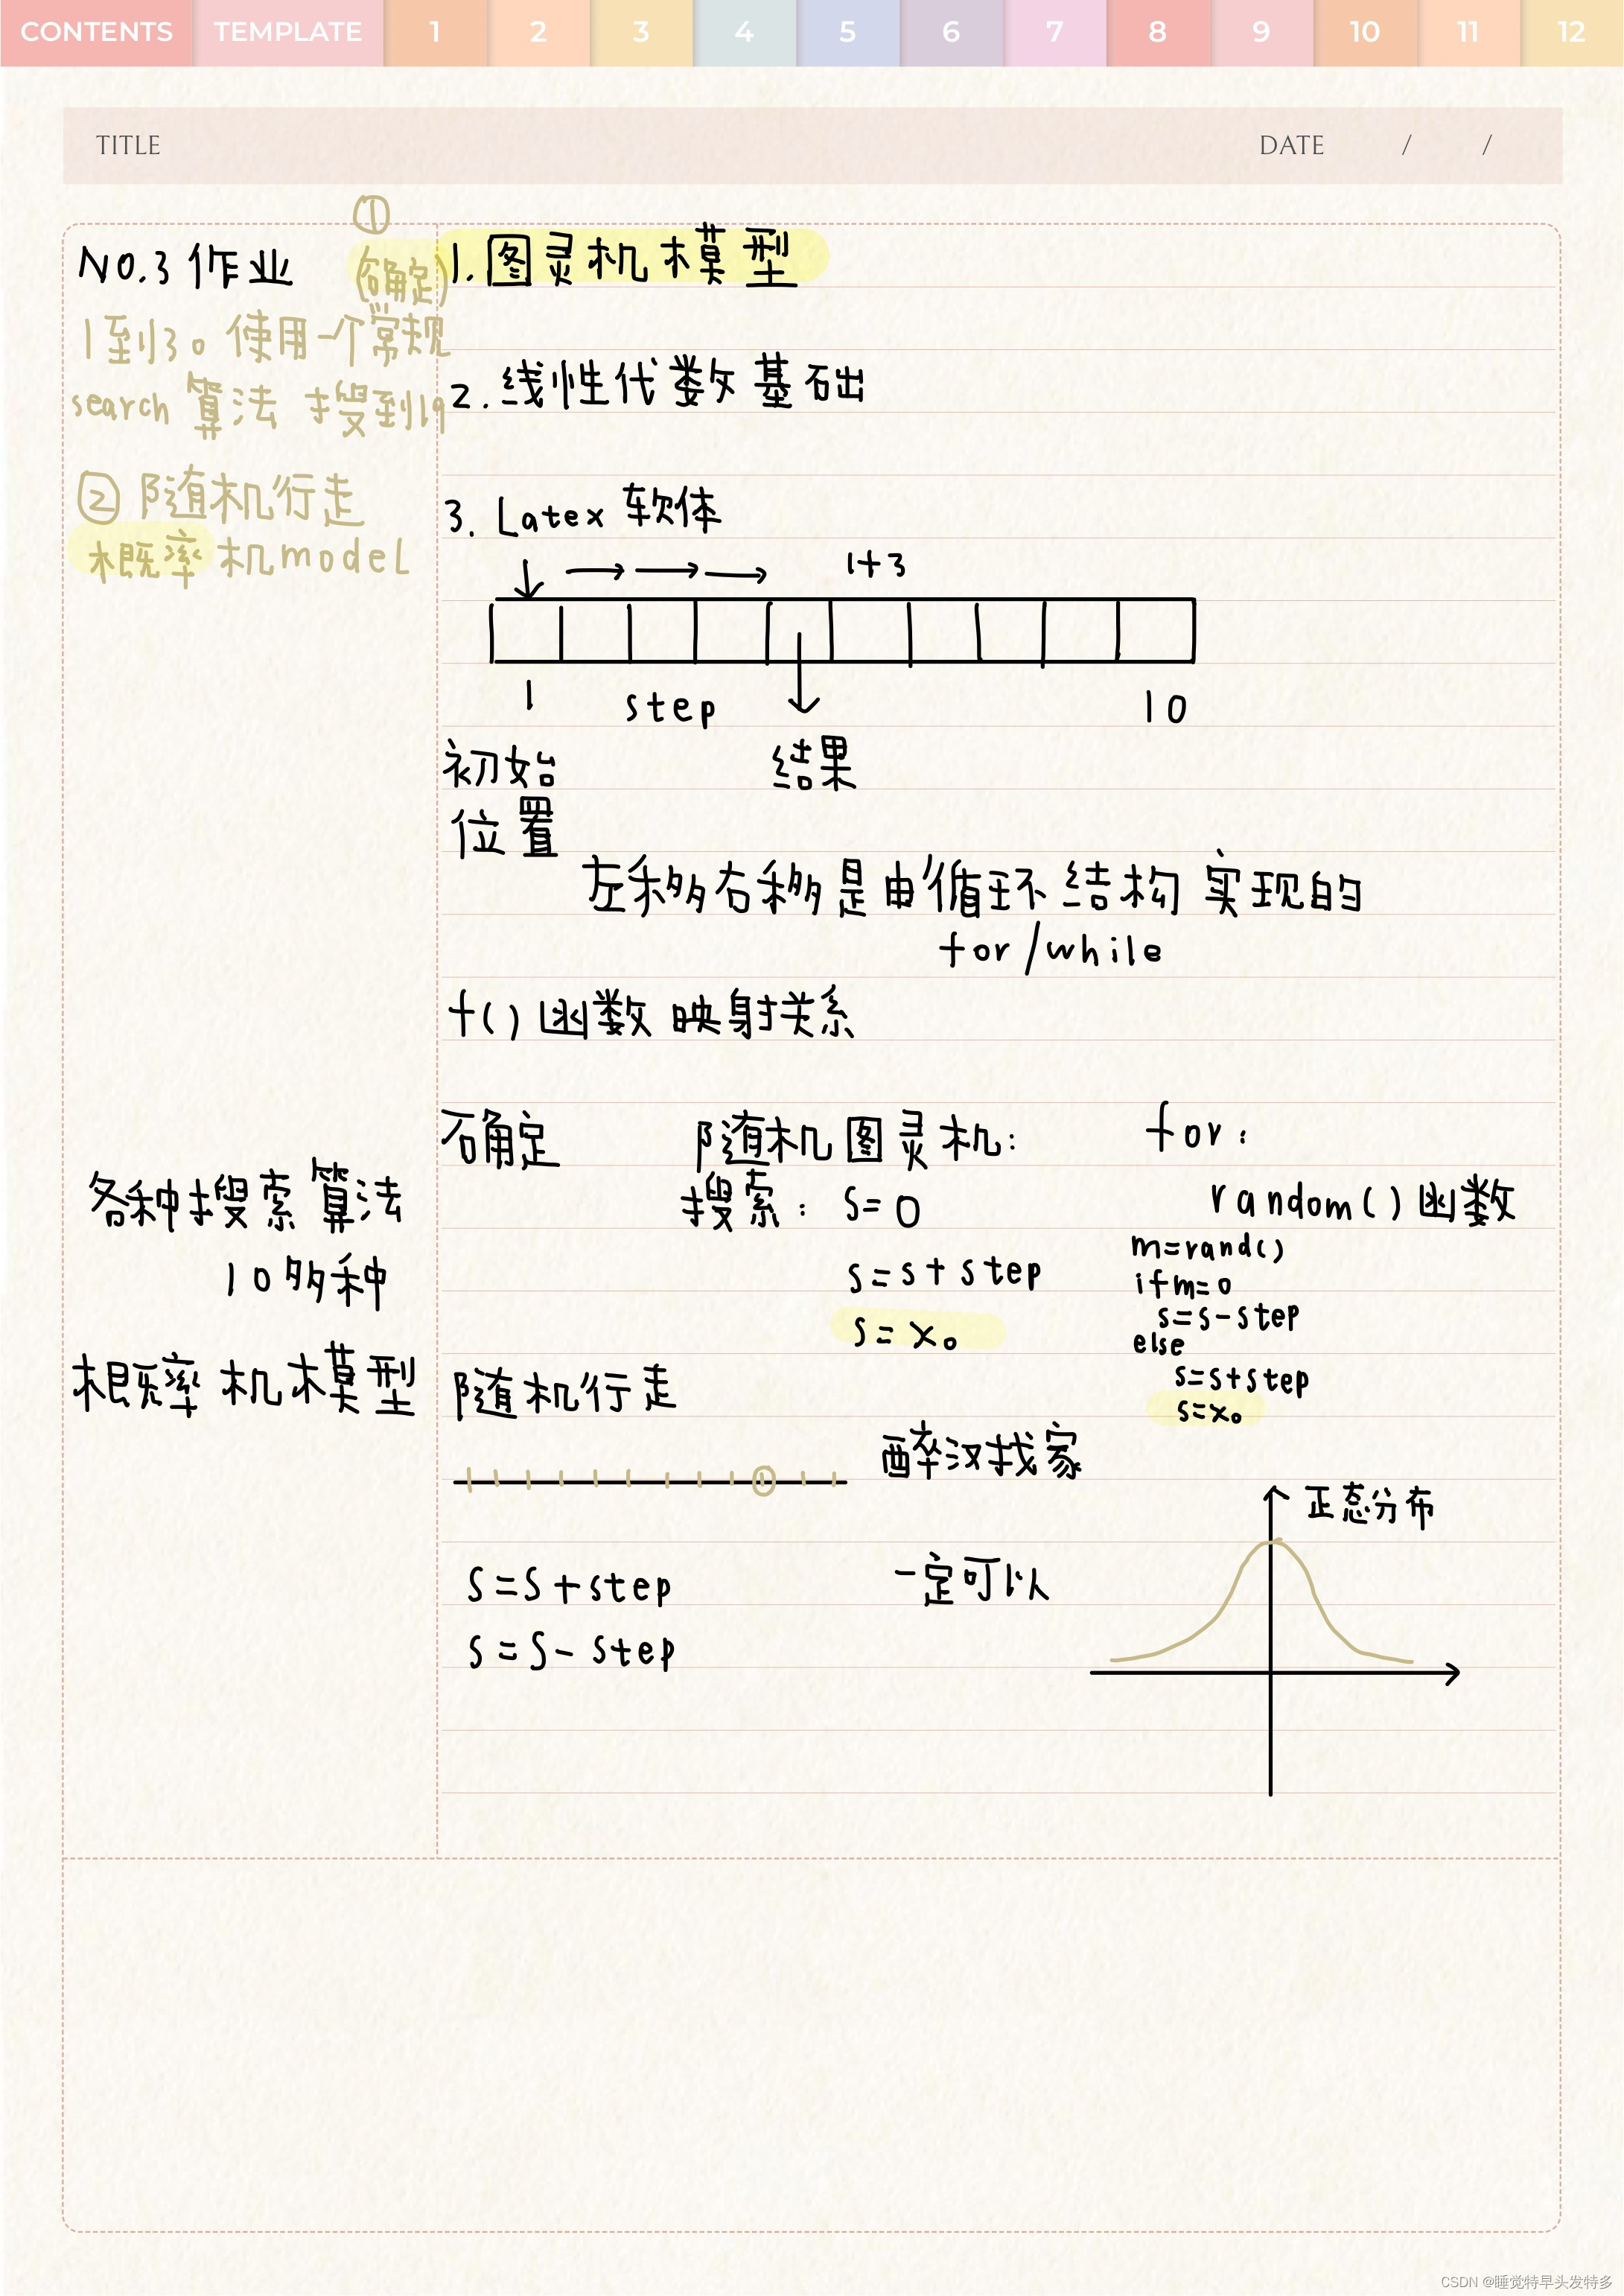 CONTENTS TEMPLATE 1 2 3 4 5 6 7 8 9 10 11 12
TITLE DATE / /
NO.3 作业
①
(确定)
1到30 使用一个常规
search 算法 搜到19
② 随机行走
概率机model
各种搜索算法
10多种
概率机模型
1.图灵机模型
2.线性代数基础
3. Latex 软体
1+3
1 step 10
初始 结果
位置
左移右移是由循环结构实现的
for/while
f()函数 映射关系
确定 随机图灵机:
搜索: s=0
s=s+step
s=x₀
for:
random()函数
m=rand()
if m=0
s=s-step
else
s=s+step
s=x₀
随机行走
醉汉找家
正态分布
S=S+step
一定可以
S=S-step
CSDN @睡觉特早头发特多